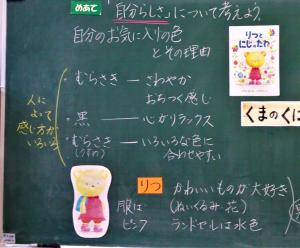 めあて 「自分らしさ」について考えよう。
自分のお気に入りの色
とその理由
・むらさき ― さわやか
おちつく感じ
・黒 ― 心がリラックス
・むらさき ― いろいろな色に
(うすめ) 合わせやすい
人に
よって
感じ方が
いろいろ
りつと
にじのたね
くまのくに
りつ かわいいものが大好き
(ぬいぐるみ・花)
服は
ピンク ランドセルは水色